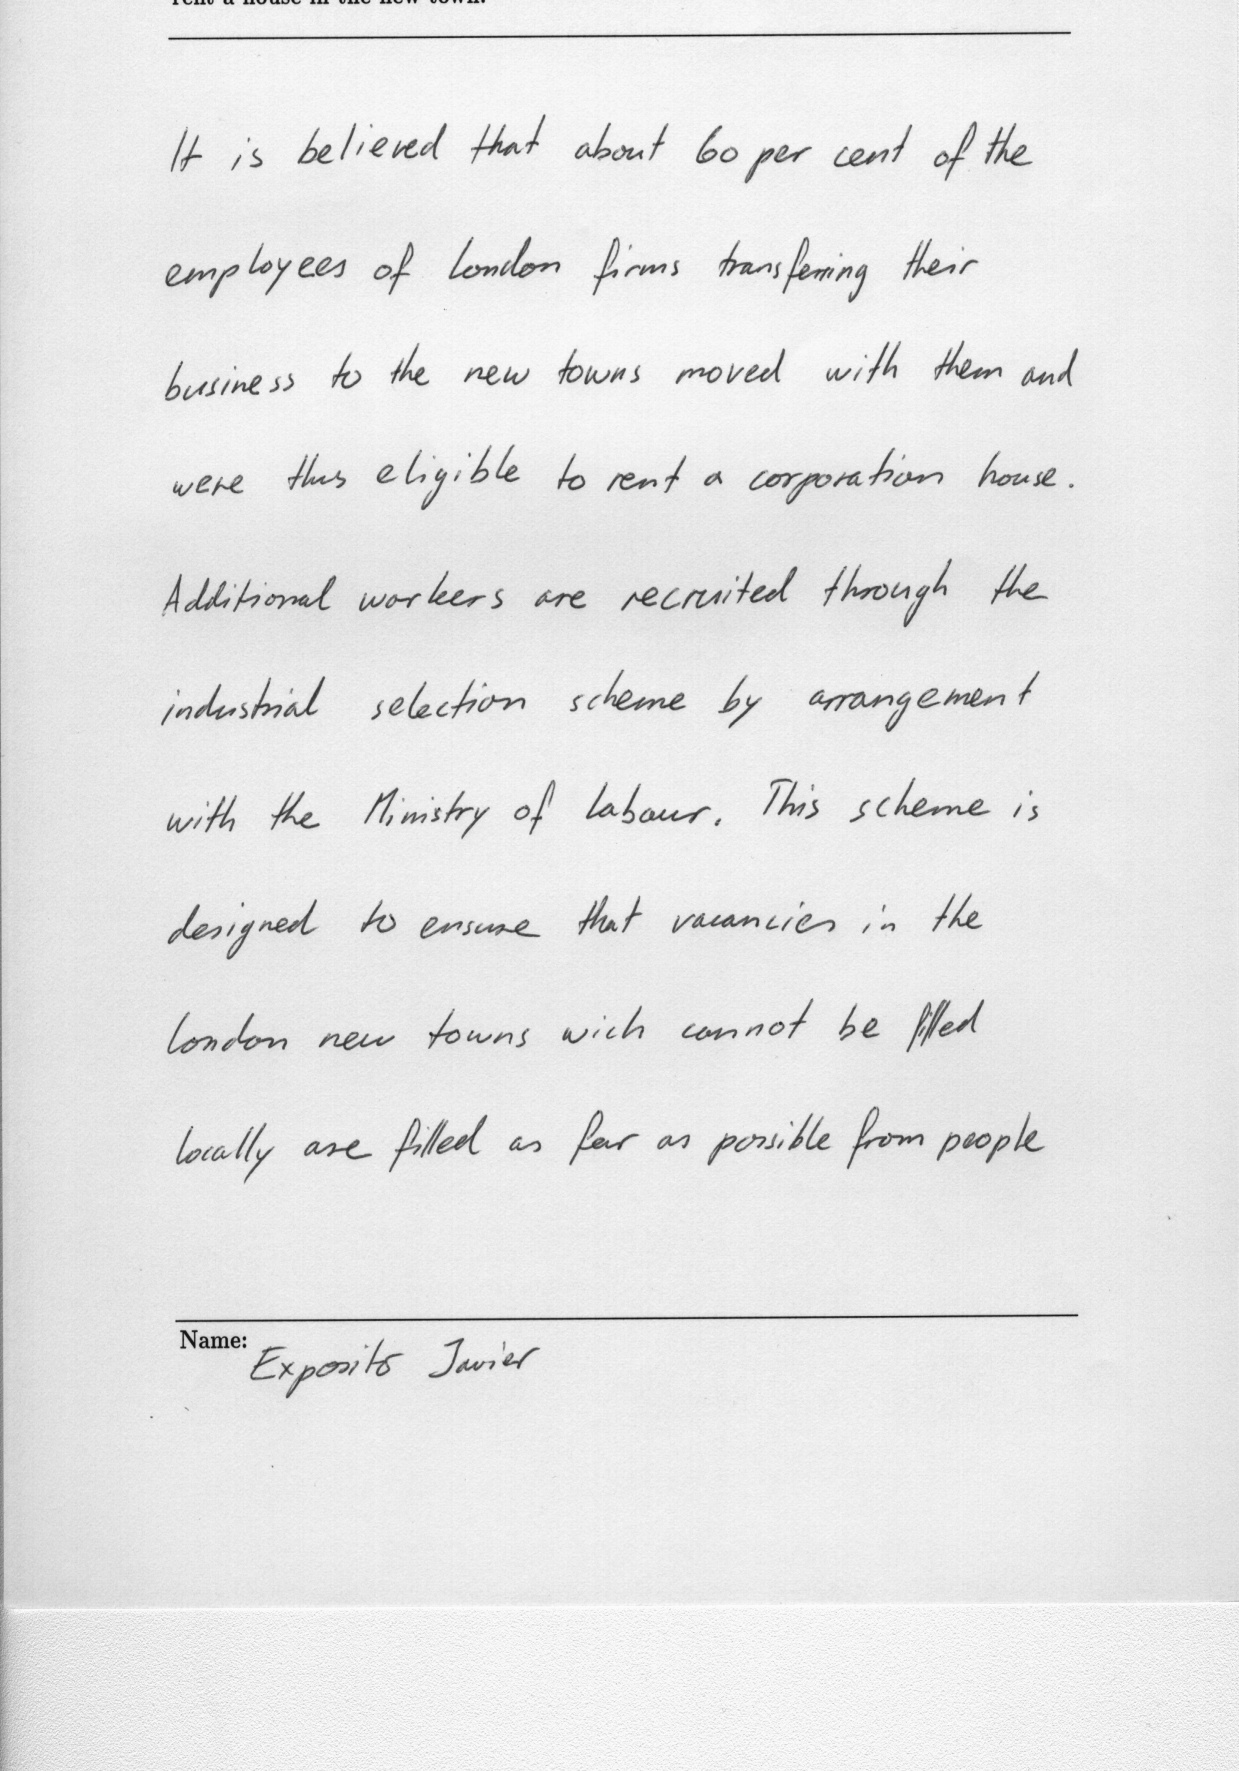 rent a house in the new town.
It is believed that about 60 per cent of the
employees of London firms transferring their
business to the new towns moved with them and
were thus eligible to rent a corporation house.
Additional workers are recruited through the
industrial selection scheme by arrangement
with the Ministry of Labour. This scheme is
designed to ensure that vacancies in the
London new towns wich cannot be filled
locally are filled as far as possible from people
Name:
Exposito Javier